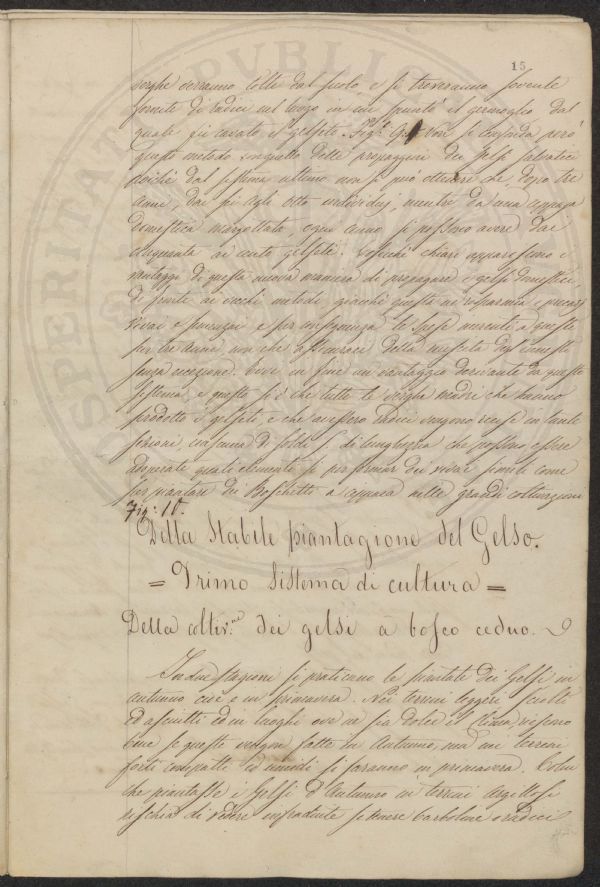 15
verghe verranno tolte dal suolo, e si troveranno sovente
fornite di radici nel luogo in cui spuntò il germoglio dal
quale fu cavato il gelseto. Fig: Non si confonda però
questo metodo con quello delle propaggini dei gelsi salvatici
poichè dal sistema ultimo non si può ottenere che, dopo tre
anni, dai sei agli otto individui, mentre da una ceppaja
domestica margottata ogni anno si possono avere dai
cinquanta ai cento gelseti. Sicchè chiari appariscono i
vantaggi di questa nuova maniera di propagare i gelsi domestici
di fronte ai vecchi metodi giacchè questa ne risparmia i
vivai e e per conseguenza le spese inerenti a queste
per tre anni, non che assicuraci della riuscita degli innesti
senza eccezione. Evvi in fine un vantaggio derivante da questo
sistema e questo si è che tutte le verghe madri che hanno
prodotto i gelseti, e che avessero radici vengono recise in tante
porzioni ciascuna di soldi di lunghezza che possono essere
adoperate quali elementi sì per formar dei vivai come
per piantare dei Boschetti a ceppaja nelle grandi coltivazioni
Fig: 10.
Della Stabile piantagione del Gelso.
= Primo Sistema di cultura =
Della coltiv.ne dei gelsi a bosco ceduo.
In due stagioni si praticano le piantate dei Gelsi in
autunno cioè e in primavera. Nei terreni leggeri sciolti
ed asciutti ed in luoghi ove sia dolce il clima, riescono
bene se queste vengon fatte in Autunno, ma nei terreni
forti compatti ed umidi si faranno in primavera. Colui
che piantasse i Gelsi d'Autunno in terreni argillosi
rischia di vedere infradicite le tenere barboline o radici